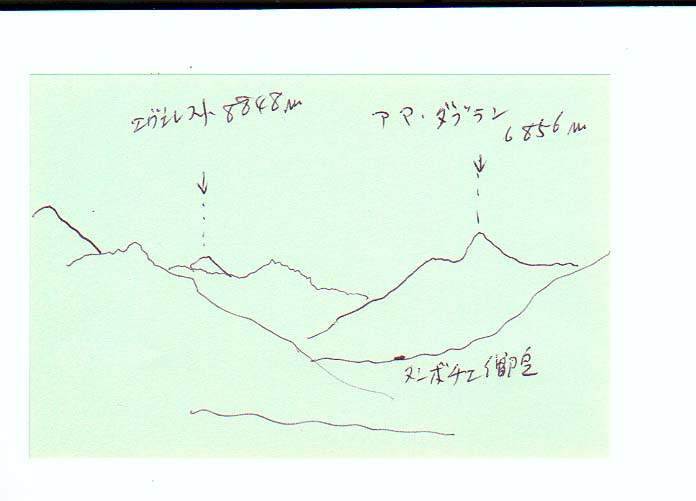 エヴェレスト 8848m
アマ・ダブラン
6856m
タンボチェ